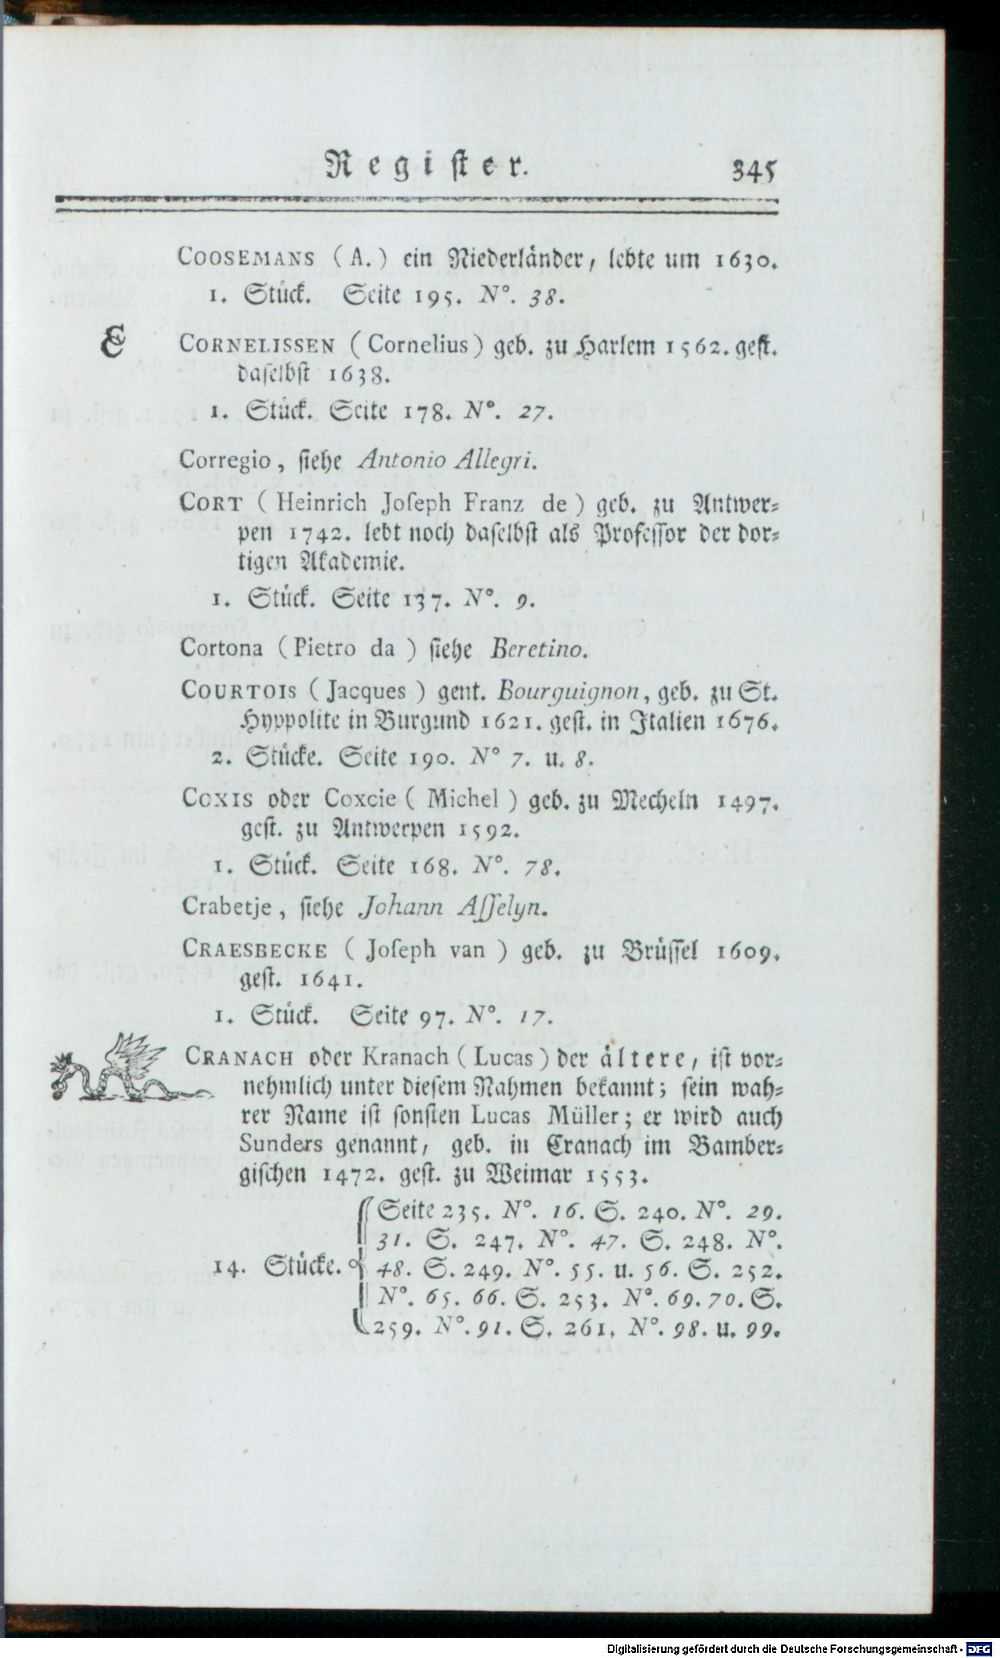 Register. 345
COOSEMANS (A.) ein Niederländer, lebte um 1630.
1. Stück. Seite 195. N°. 38.
CORNELISSEN (Cornelius) geb. zu Harlem 1562. gest.
daselbst 1638.
1. Stück. Seite 178. N°. 27.
Corregio, siehe Antonio Allegri.
CORT (Heinrich Joseph Franz de) geb. zu Antwer-
pen 1742. lebt noch daselbst als Professor der dor-
tigen Akademie.
1. Stück. Seite 137. N°. 9.
Cortona (Pietro da) siehe Beretino.
COURTOIS (Jacques) gent. Bourguignon, geb. zu St.
Hyppolite in Burgund 1621. gest. in Italien 1676.
2. Stücke. Seite 190. N° 7. u. 8.
COXIS oder Coxcie (Michel) geb. zu Mecheln 1497.
gest. zu Antwerpen 1592.
1. Stück. Seite 168. N°. 78.
Crabetje, siehe Johann Asselyn.
CRAESBECKE (Joseph van) geb. zu Brüssel 1609.
gest. 1641.
1. Stück. Seite 97. N°. 17.
CRANACH oder Kranach (Lucas) der ältere, ist vor-
nehmlich unter diesem Nahmen bekannt; sein wah-
rer Name ist sonsten Lucas Müller; er wird auch
Sunders genannt, geb. in Cranach im Bamber-
gischen 1472. gest. zu Weimar 1553.
Seite 235. N°. 16. S. 240. N°. 29.
31. S. 247. N°. 47. S. 248. N°.
14. Stücke. 48. S. 249. N°. 55. u. 56. S. 252.
N°. 65. 66. S. 253. N°. 69. 70. S.
259. N°. 91. S. 261. N°. 98. u. 99.
Digitalisierung gefördert durch die Deutsche Forschungsgemeinschaft - DFG